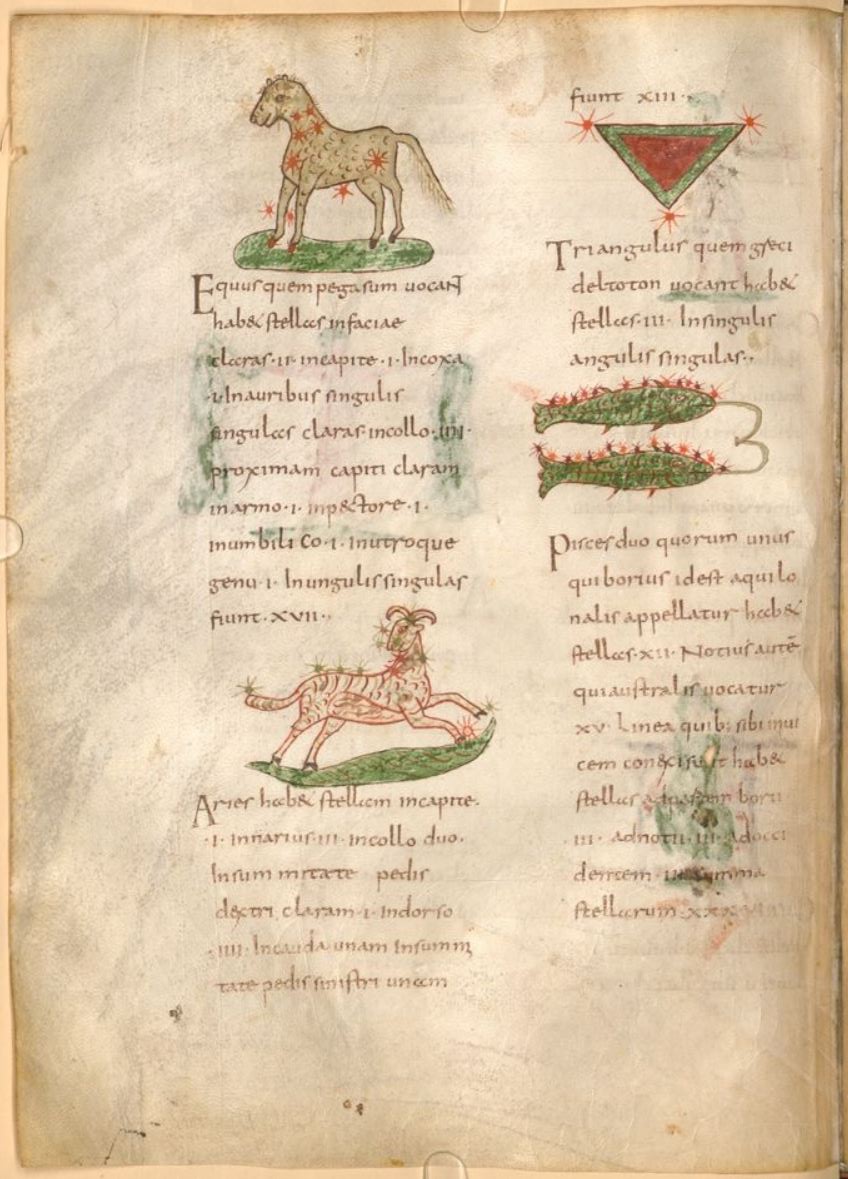 Equus quem pegasum uocant
hab& stellas infaciae
claras·ii· incapite·i·Incoxa
·i·Inauribus singulis
singulas claras·incollo·iiii·
proximam capiti claram
inarmo·i· inpectore·i·
inumbilico·i·Inutroque
genu·i·Inungulis singulas
fiunt·xvii··
Aries hab& stellam incapite·
·i·innarius·iii·incollo duo·
Insummitate pedis
dextri claram·i·Indorso
·iiii·Incauda unam Insummi
tate pedis sinistri unam
fiunt xiii··
Triangulus quem greci
deltoton uocant hab&
stellas·iii·Insingulis
angulis singulas··
Pisces duo quorum unus
qui borius idest aquilo
nalis appellatur hab&
stellas·xii·Notius autē
qui australis uocatur
xv·Linea quib; sibi inui
cem conexi sunt hab&
stellas ad
iii· adnotū·iii·Adocci
dentem· summa
stellarum